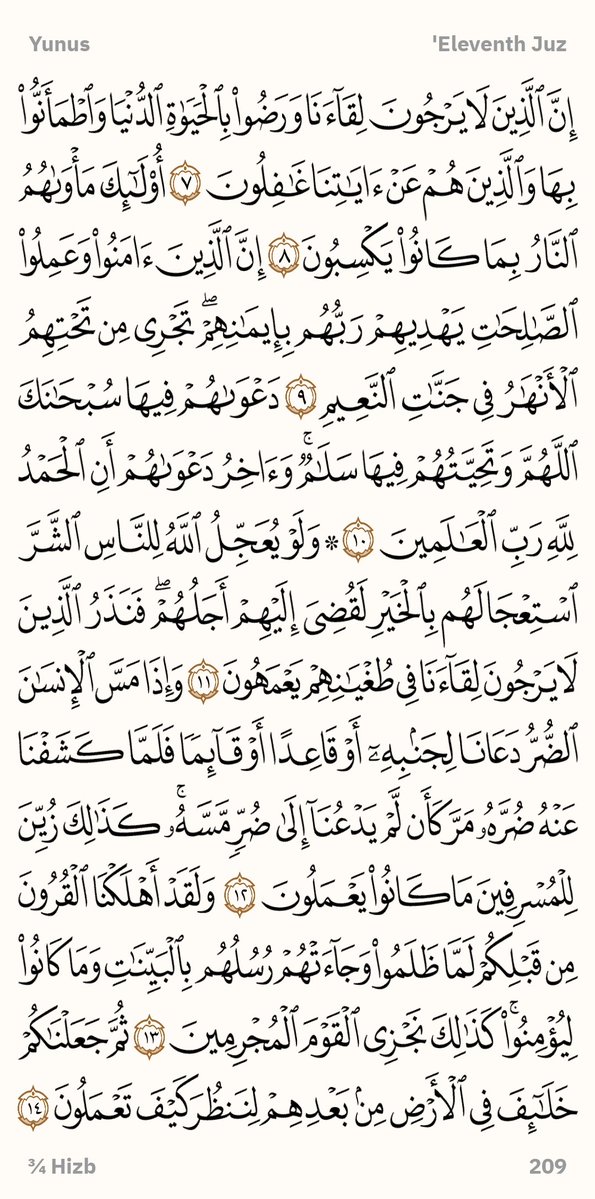 Yunus
'Eleventh Juz
إِنَّ ٱلَّذِينَ لَا يَرْجُونَ لِقَآءَنَا وَرَضُوا۟ بِٱلْحَيَوٰةِ ٱلدُّنْيَا وَٱطْمَأَنُّوا۟
بِهَا وَٱلَّذِينَ هُمْ عَنْ ءَايَـٰتِنَا غَـٰفِلُونَ ٧ أُو۟لَـٰٓئِكَ مَأْوَىٰهُمُ
ٱلنَّارُ بِمَا كَانُوا۟ يَكْسِبُونَ ٨ إِنَّ ٱلَّذِينَ ءَامَنُوا۟ وَعَمِلُوا۟
ٱلصَّـٰلِحَـٰتِ يَهْدِيهِمْ رَبُّهُم بِإِيمَـٰنِهِمْ ۖ تَجْرِى مِن تَحْتِهِمُ
ٱلْأَنْهَـٰرُ فِى جَنَّـٰتِ ٱلنَّعِيمِ ٩ دَعْوَىٰهُمْ فِيهَا سُبْحَـٰنَكَ
ٱللَّهُمَّ وَتَحِيَّتُهُمْ فِيهَا سَلَـٰمٌ ۚ وَءَاخِرُ دَعْوَىٰهُمْ أَنِ ٱلْحَمْدُ
لِلَّهِ رَبِّ ٱلْعَـٰلَمِينَ ١٠ * وَلَوْ يُعَجِّلُ ٱللَّهُ لِلنَّاسِ ٱلشَّرَّ
ٱسْتِعْجَالَهُم بِٱلْخَيْرِ لَقُضِىَ إِلَيْهِمْ أَجَلُهُمْ ۖ فَنَذَرُ ٱلَّذِينَ
لَا يَرْجُونَ لِقَآءَنَا فِى طُغْيَـٰنِهِمْ يَعْمَهُونَ ١١ وَإِذَا مَسَّ ٱلْإِنسَـٰنَ
ٱلضُّرُّ دَعَانَا لِجَنۢبِهِۦٓ أَوْ قَاعِدًا أَوْ قَآئِمًا فَلَمَّا كَشَفْنَا
عَنْهُ ضُرَّهُۥ مَرَّ كَأَن لَّمْ يَدْعُنَآ إِلَىٰ ضُرٍّ مَّسَّهُۥ ۚ كَذَٰلِكَ زُيِّنَ
لِلْمُسْرِفِينَ مَا كَانُوا۟ يَعْمَلُونَ ١٢ وَلَقَدْ أَهْلَكْنَا ٱلْقُرُونَ
مِن قَبْلِكُمْ لَمَّا ظَلَمُوا۟ وَجَآءَتْهُمْ رُسُلُهُم بِٱلْبَيِّنَـٰتِ وَمَا كَانُوا۟
لِيُؤْمِنُوا۟ ۚ كَذَٰلِكَ نَجْزِى ٱلْقَوْمَ ٱلْمُجْرِمِينَ ١٣ ثُمَّ جَعَلْنَـٰكُمْ
خَلَـٰٓئِفَ فِى ٱلْأَرْضِ مِنۢ بَعْدِهِمْ لِنَنظُرَ كَيْفَ تَعْمَلُونَ ١٤
¾ Hizb
209